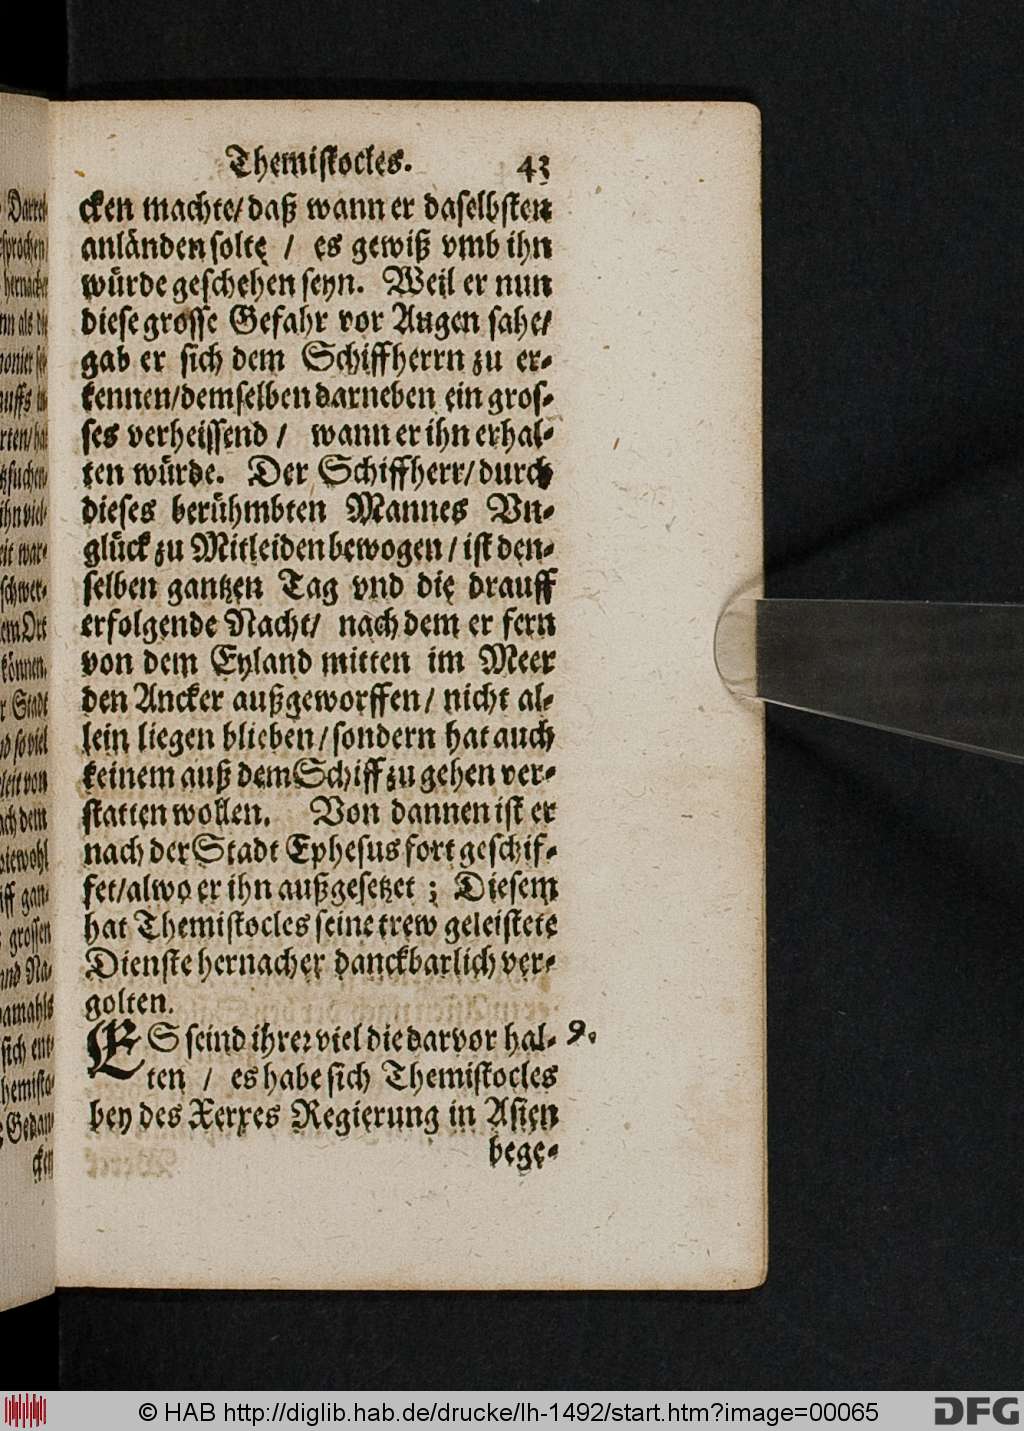 Themistocles. 43
cken machte/ daß wann er daselbsten
anländen solte / es gewiß vmb ihn
würde geschehen seyn. Weil er nun
diese grosse Gefahr vor Augen sahe/
gab er sich dem Schiffherrn zu er-
kennen/ demselben darneben ein gros-
ses verheissend / wann er ihn erhal-
ten würde. Der Schiffherr/ durch
dieses berühmbten Mannes Vn-
glück zu Mitleiden bewogen / ist den-
selben gantzen Tag vnd die drauff
erfolgende Nacht/ nach dem er fern
von dem Eyland mitten im Meer
den Ancker außgeworffen/ nicht al-
lein liegen blieben/ sondern hat auch
keinem auß dem Schiff zu gehen ver-
statten wollen. Von dannen ist er
nach der Stadt Ephesus fort geschif-
fet/ alwo er ihn außgesetzet ; Diesem
hat Themistocles seine trew geleistete
Dienste hernacher danckbarlich ver-
golten.
ES seind ihrer viel die darvor hal- 9.
ten / es habe sich Themistocles
bey des Xerxes Regierung in Asien
bege-
© HAB http://diglib.hab.de/drucke/lh-1492/start.htm?image=00065
DFG